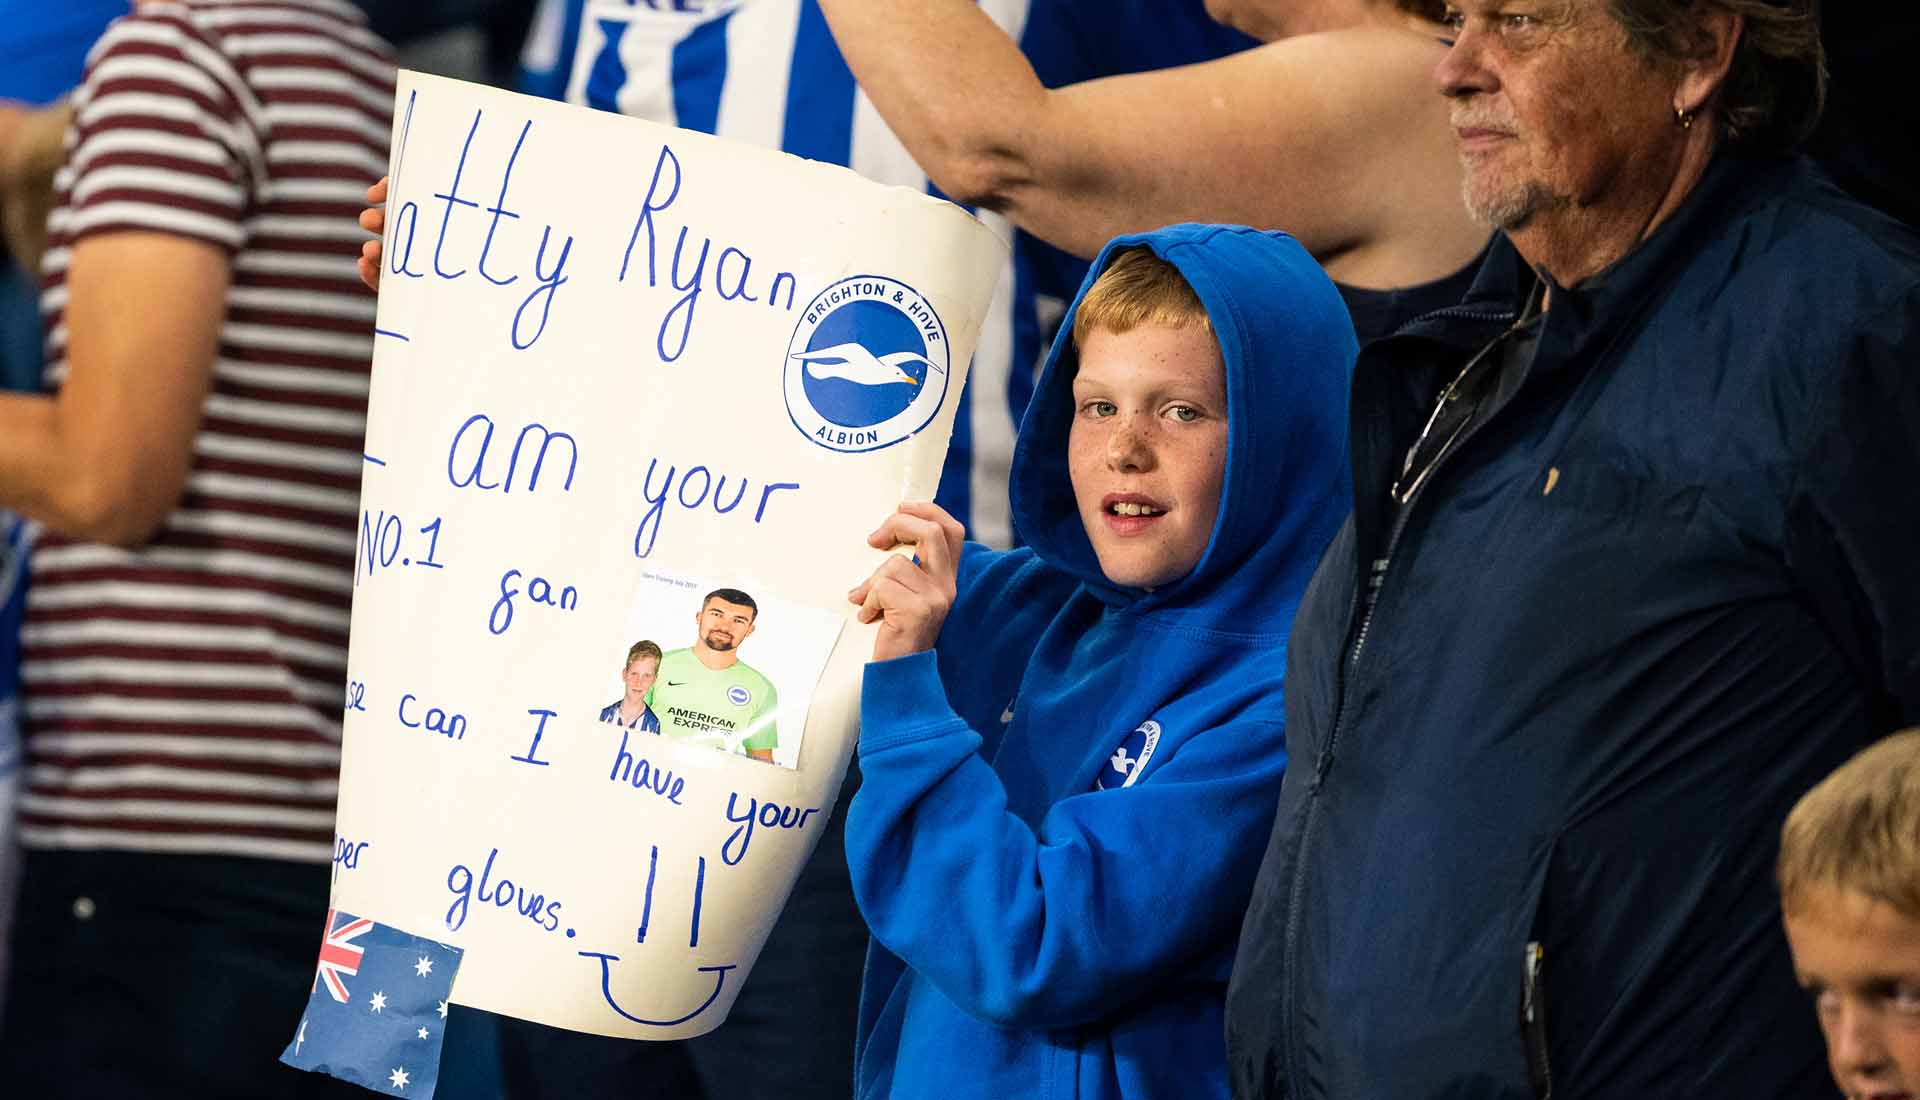 atty Ryan
BRIGHTON & HOVE
ALBION
I am your
NO.1 fan
se can I have your
per gloves. !!
AMERICAN
EXPRESS